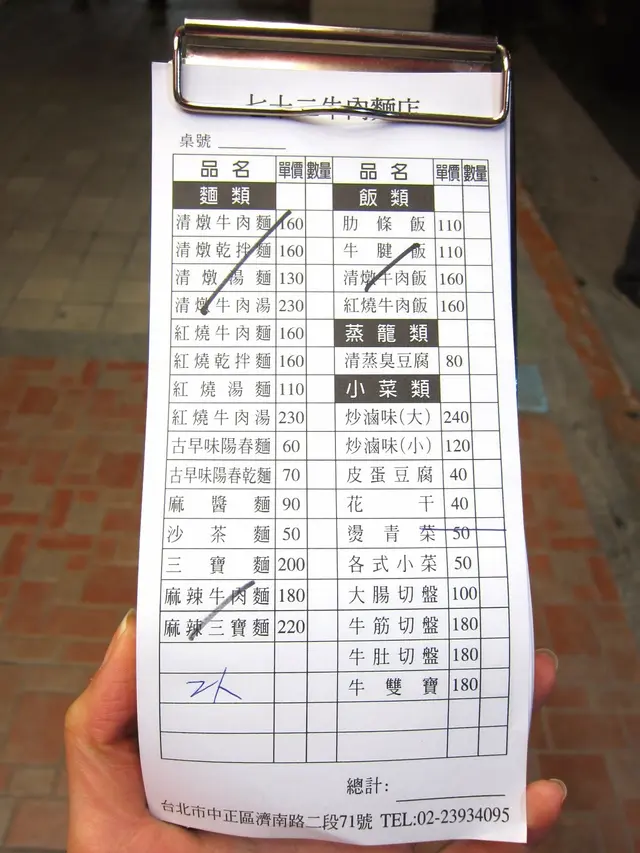 七十二牛肉麵店
桌號
品名 單價 數量 品名 單價 數量
麵類 飯類
清燉牛肉麵 160 肋條飯 110
清燉乾拌麵 160 牛腱飯 110
清燉湯麵 130 清燉牛肉飯 160
清燉牛肉湯 230 紅燒牛肉飯 160
紅燒牛肉麵 160 蒸籠類
紅燒乾拌麵 160 清蒸臭豆腐 80
紅燒湯麵 110 小菜類
紅燒牛肉湯 230 炒滷味(大) 240
古早味陽春麵 60 炒滷味(小) 120
古早味陽春乾麵 70 皮蛋豆腐 40
麻醬麵 90 花干 40
沙茶麵 50 燙青菜 50
三寶麵 200 各式小菜 50
麻辣牛肉麵 180 大腸切盤 100
麻辣三寶麵 220 牛筋切盤 180
牛肚切盤 180
牛雙寶 180
總計:
台北市中正區濟南路二段71號 TEL:02-23934095